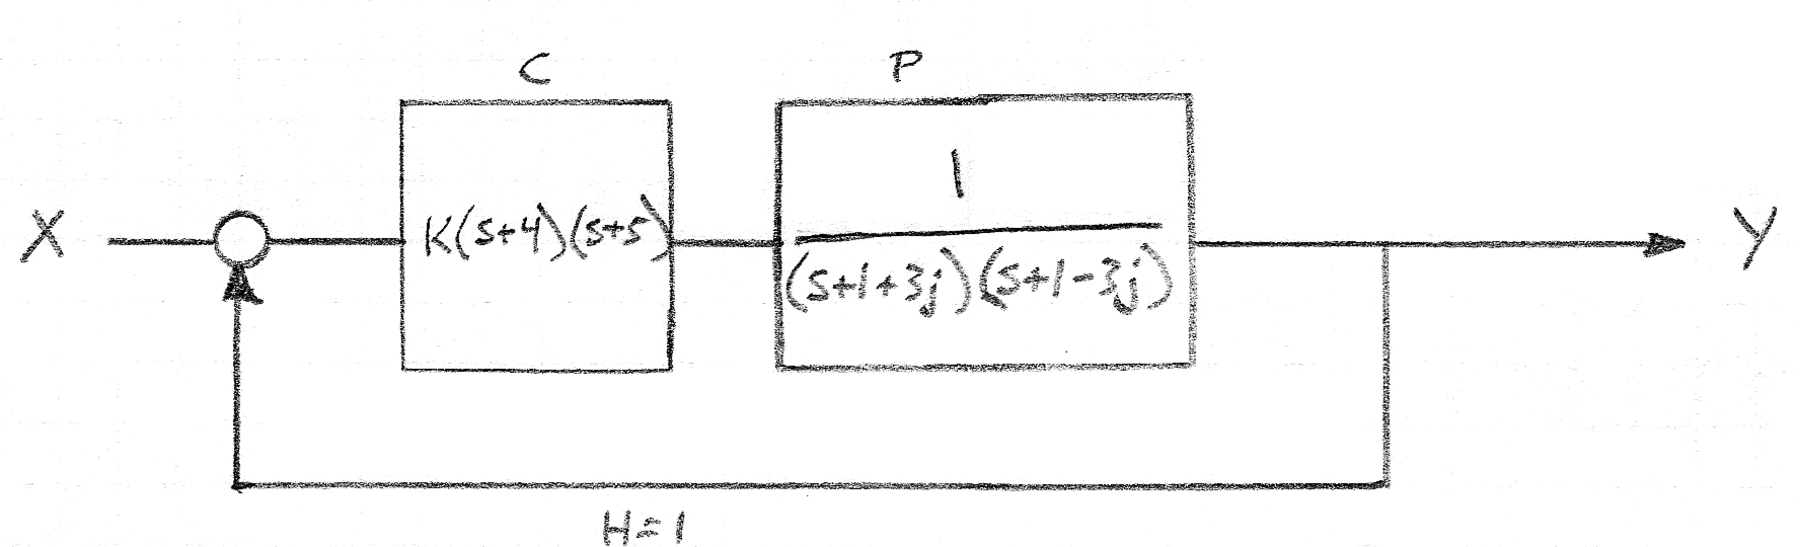 C
P
X
K(s+4)(s+5)
1
(s+1+3j)(s+1-3j)
Y
H=1